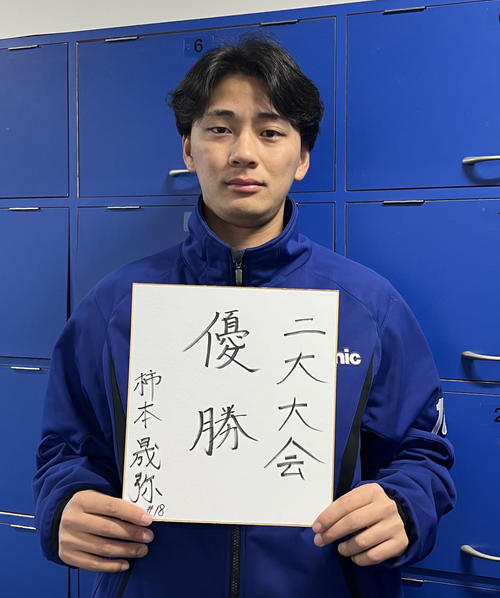 6
二大大会
優勝
柿本晟弥
#18
nic